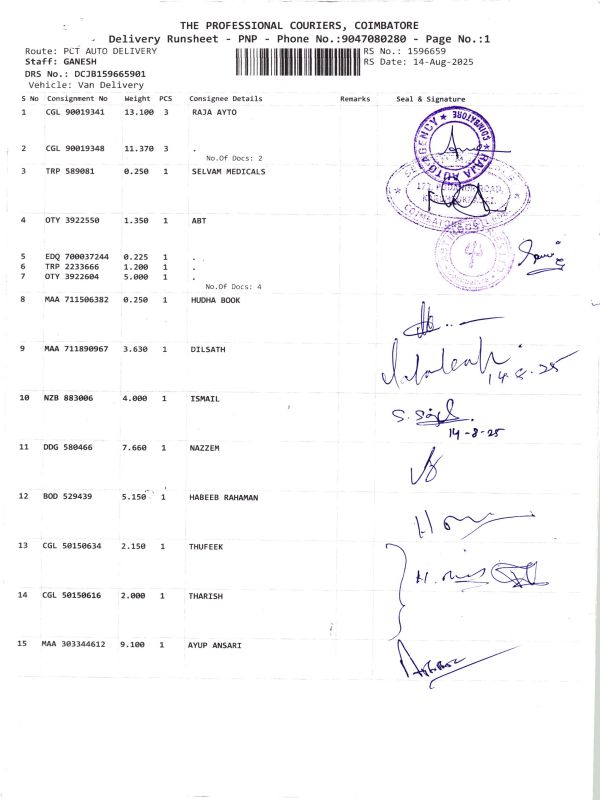 THE PROFESSIONAL COURIERS, COIMBATORE
Delivery Runsheet - PNP - Phone No.:9047080280 - Page No.:1
Route: PCT AUTO DELIVERY
RS No.: 1596659
Staff: GANESH
RS Date: 14-Aug-2025
DRS No.: DCJB159665901
Vehicle: Van Delivery
S No Consignment No Weight PCS Consignee Details Remarks Seal & Signature
1 CGL 90019341 13.100 3 RAJA AYTO
2 CGL 90019348 11.370 3 .
No.Of Docs: 2
RAJA AUTO AGENCY ★ COIMBATORE ★
3 TRP 589081 0.250 1 SELVAM MEDICALS
4 OTY 3922550 1.350 1 ABT
5 EDQ 700037244 0.225 1 .
6 TRP 2233666 1.200 1 .
7 OTY 3922604 5.000 1 .
No.Of Docs: 4
8 MAA 711506382 0.250 1 HUDHA BOOK
9 MAA 711890967 3.630 1 DILSATH
14-8-25
10 NZB 883006 4.000 1 ISMAIL
14-8-25
11 DDG 580466 7.660 1 NAZZEM
12 BOD 529439 5.150 1 HABEEB RAHAMAN
13 CGL 50150634 2.150 1 THUFEEK
14 CGL 50150616 2.000 1 THARISH
15 MAA 303344612 9.100 1 AYUP ANSARI